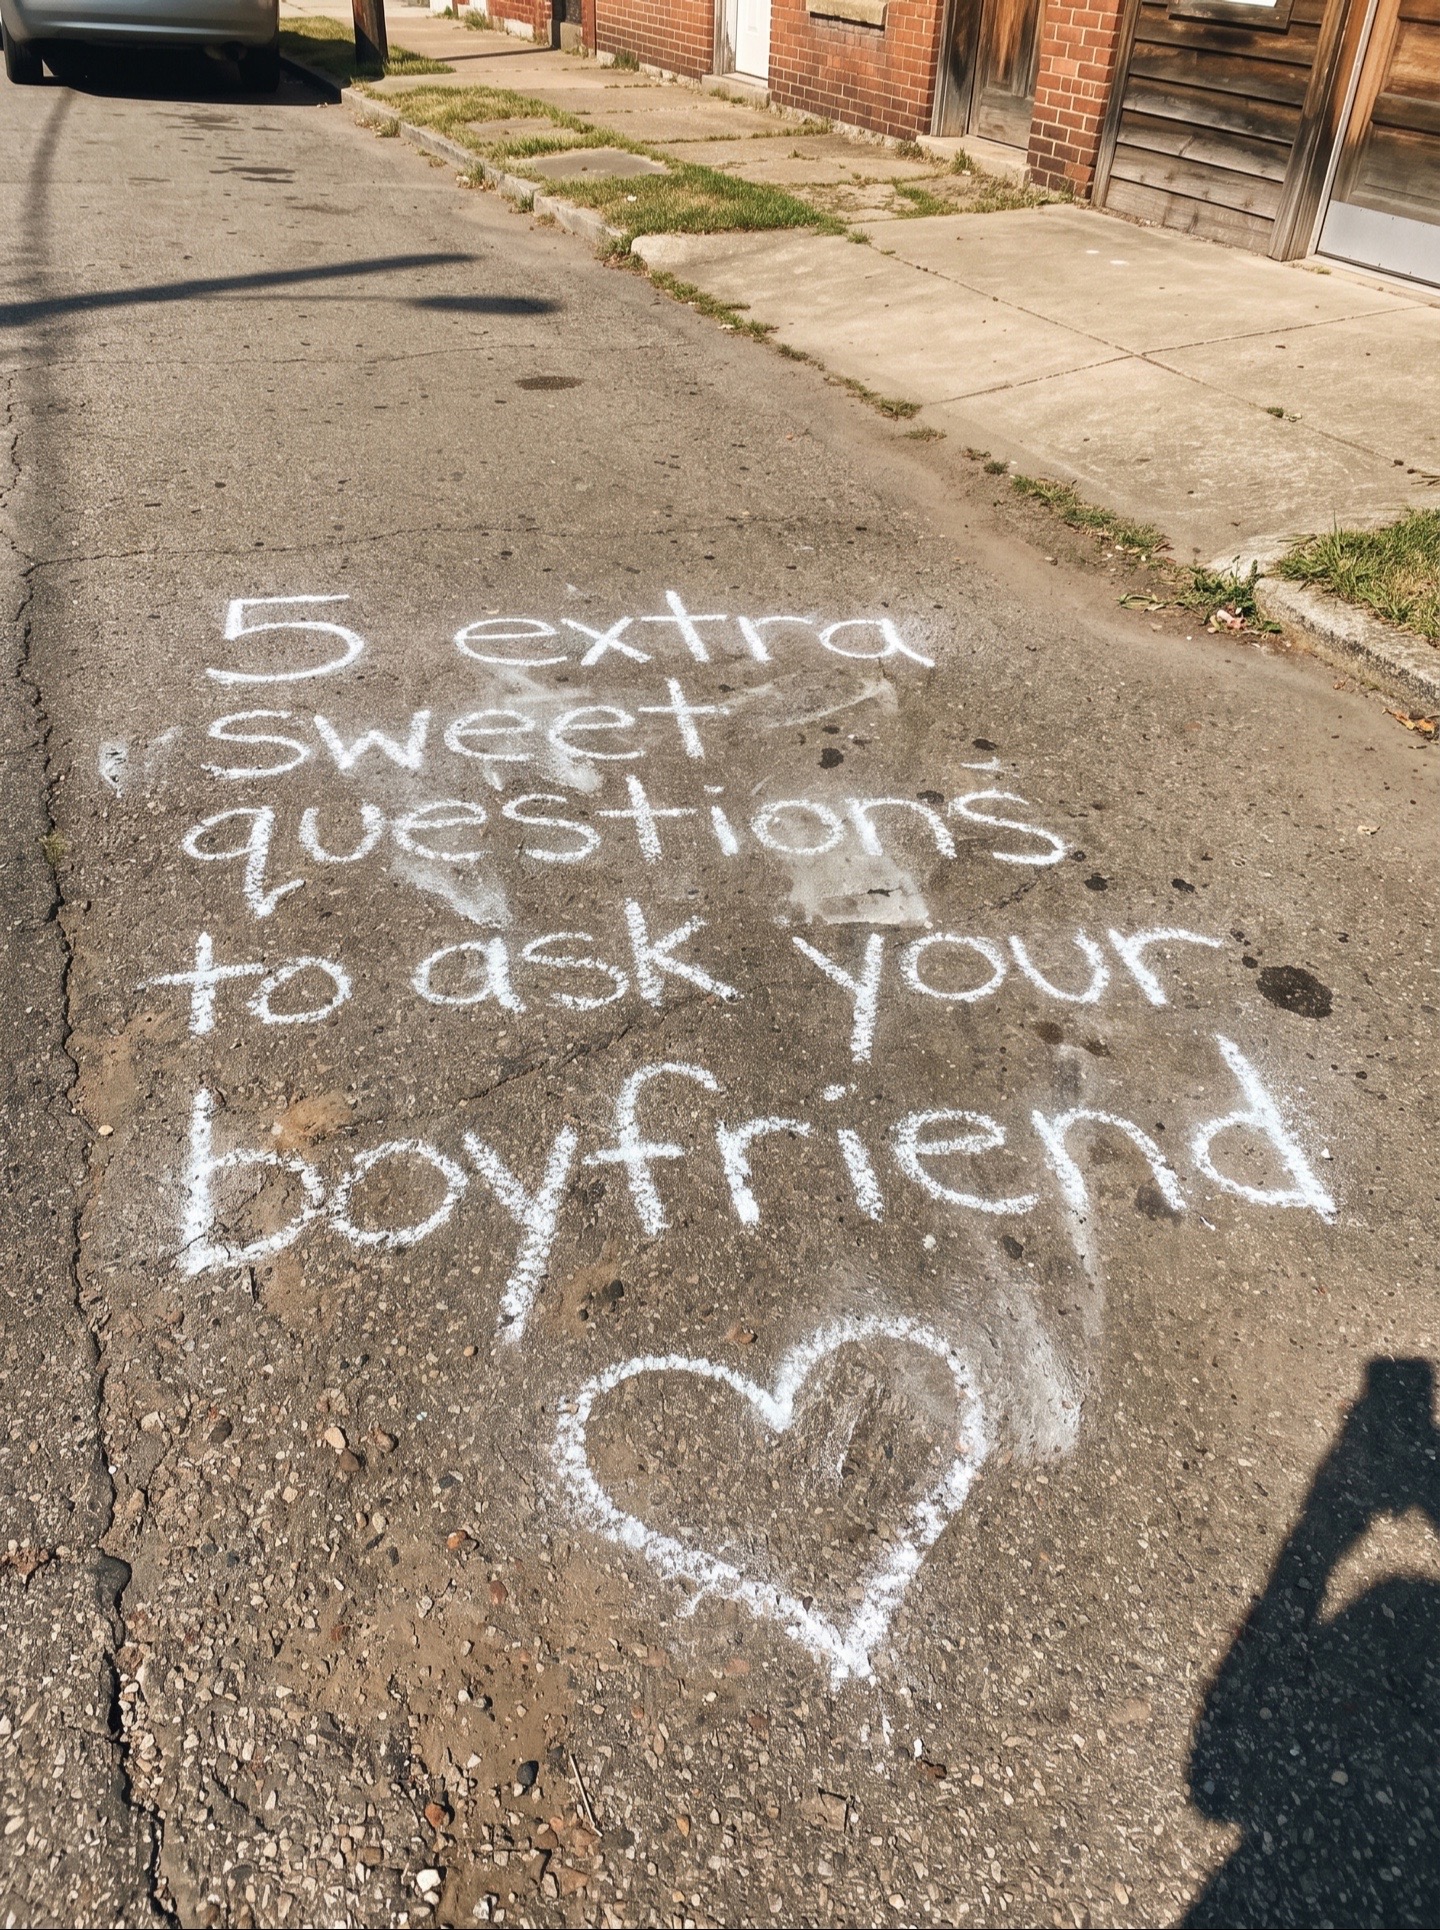 5 extra
sweet
questions
to ask your
boyfriend